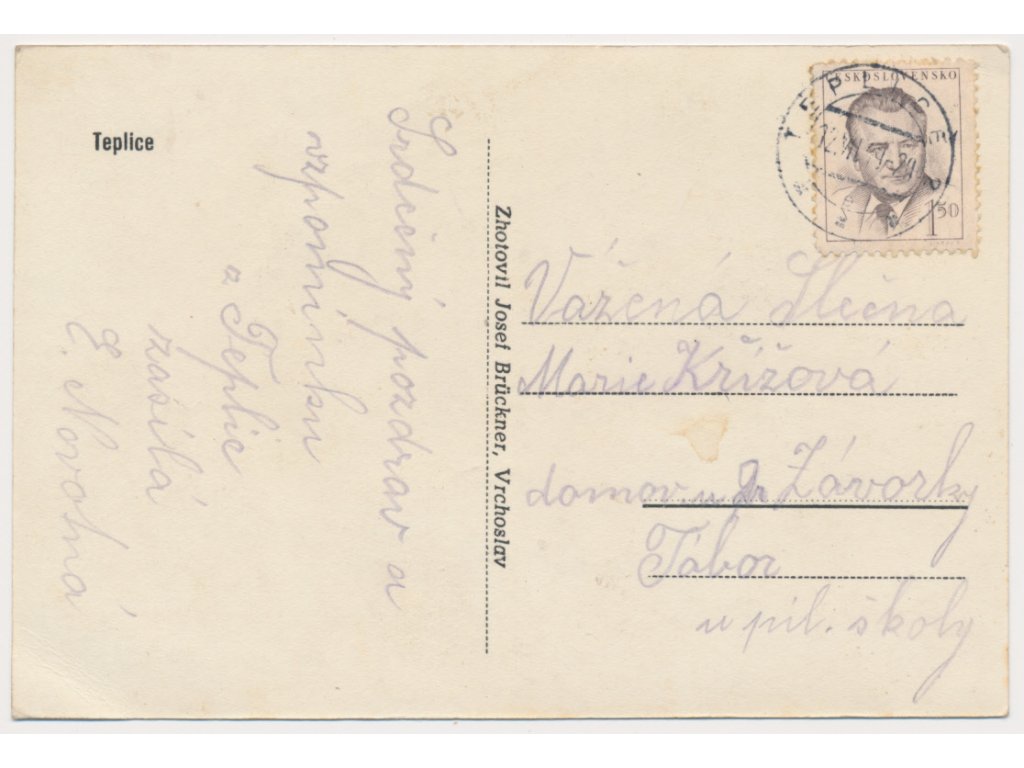 Teplice
Srdečný pozdrav a
vzpomínku
z Teplic
zasílá
E. Novotná
Zhotovil Josef Brückner, Vrchoslav
TEPLICE
ČESKOSLOVENSKO
1 50
Vážená Slečna
Marie Křížová
domov. u Závorky
Tábor
u pil. školy